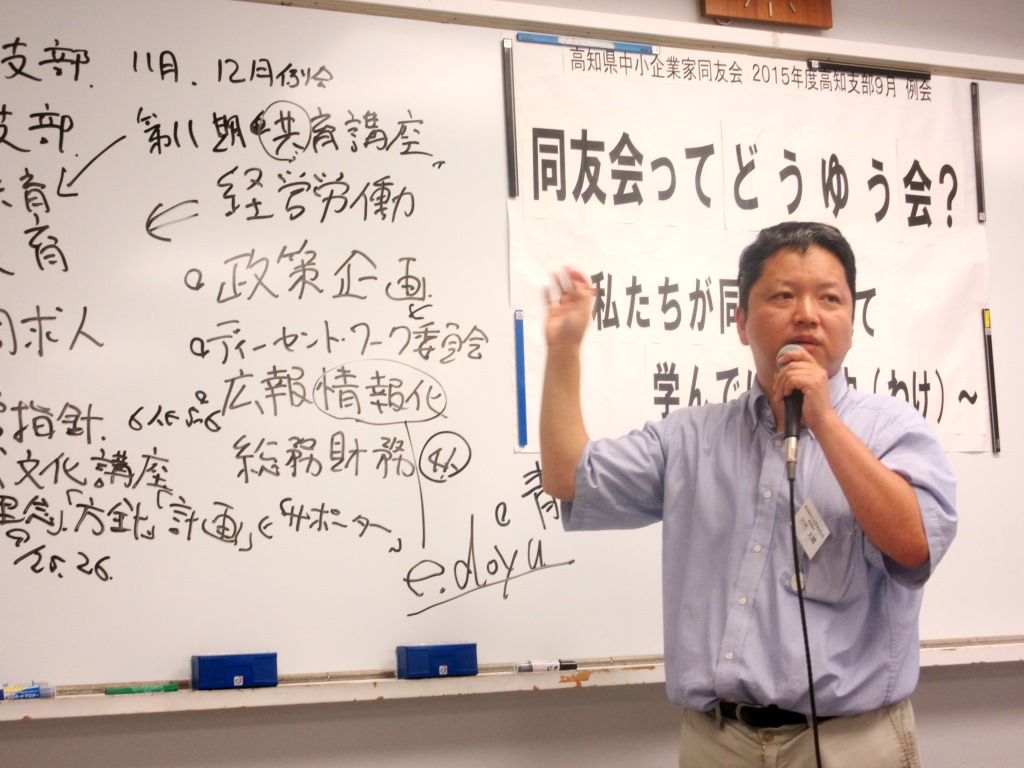 支部 11月、12月例会
支部
第11期 共育講座
育
経営労働
育
政策企画
求人
ディーセント・ワーク委員会
広報 情報化
指針
総務財務
文化講座
「方針」「計画」 「サポーター」
25.26.
青
e.doyu
高知県中小企業家同友会 2015年度高知支部9月 例会
同友会ってどうゆう会?
私たちが同 て
学んで (わけ)~